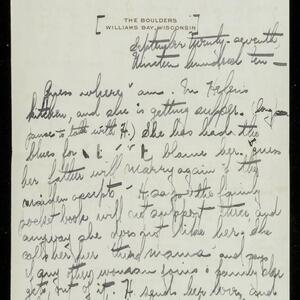 THE BOULDERS
WILLIAMS BAY, WISCONSIN
September twenty-seventh
Nineteen hundred ten —
Guess where I am. In Helen's
kitchen, and she is getting supper. (Long
pause to talk with H.) She has had the
blues for I blame her, guess
her father will marry again "the
maiden aspect" H says the family
pocket book will not support three, and
anyway she does not like her, she
calls her the third mama and says
if any other woman gains a penny she
gets out of it. H. sends her love, and